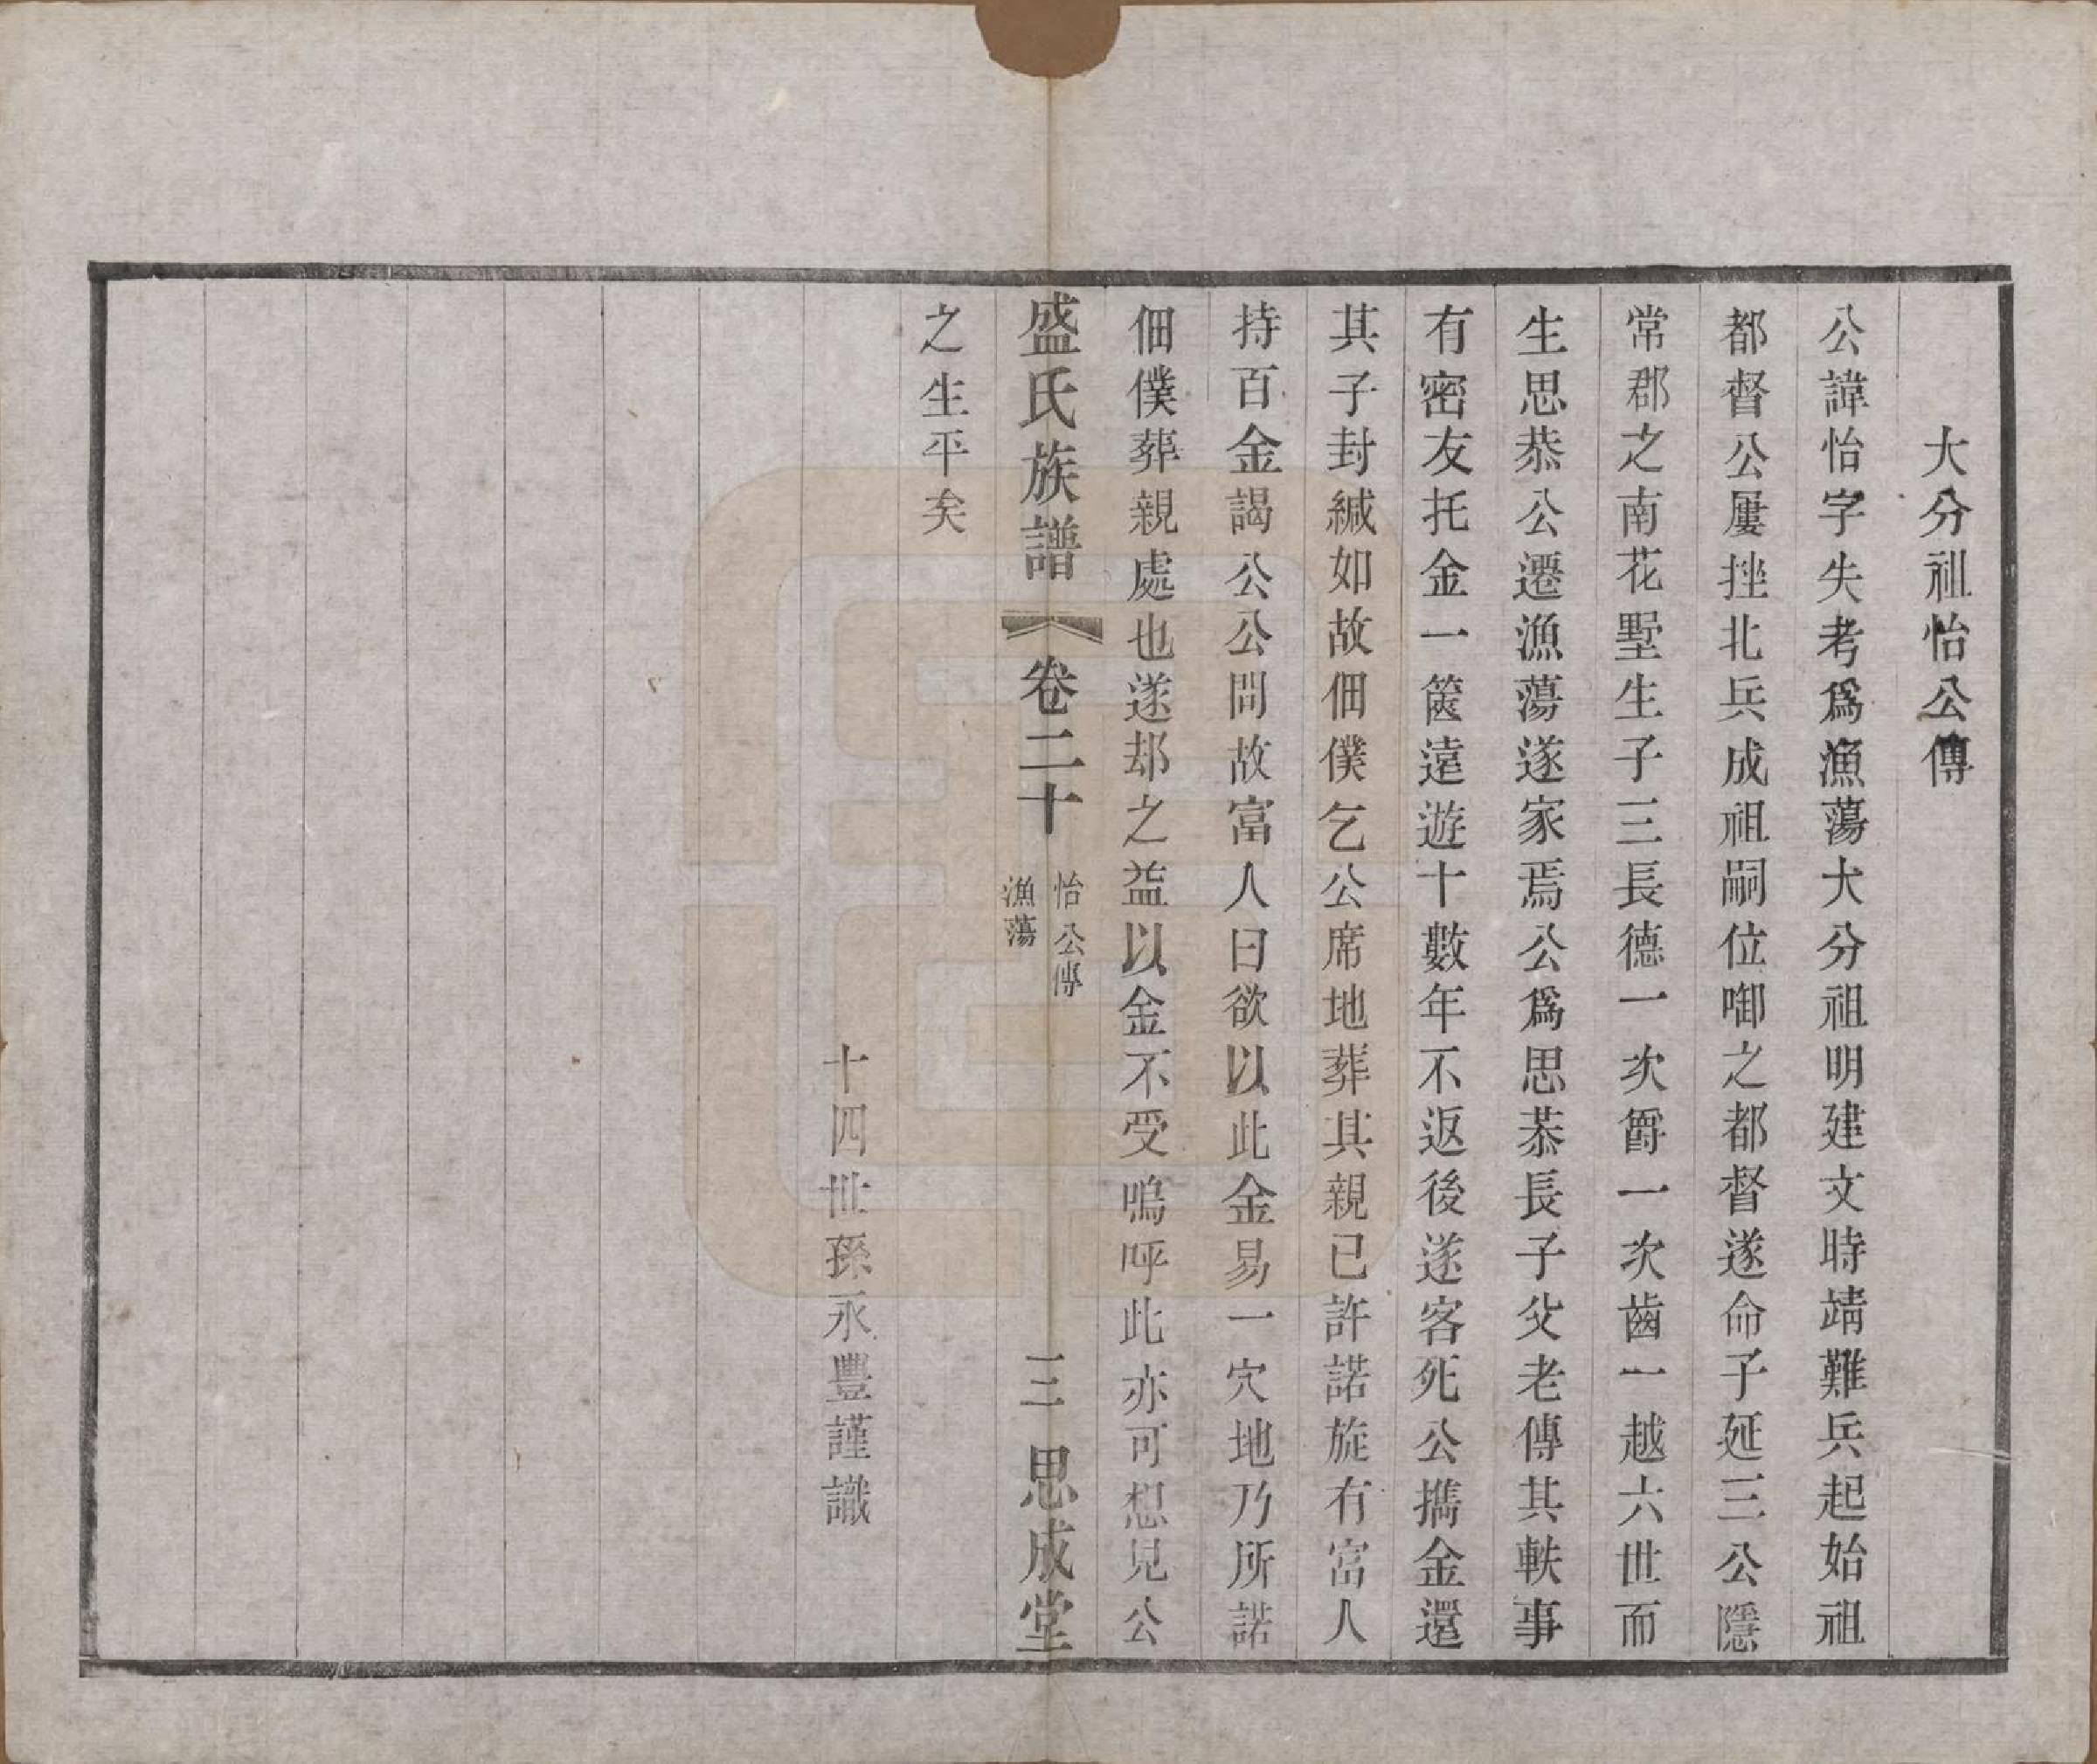 大分祖怡公傳
公諱怡字失考爲漁蕩大分祖明建文時靖難兵起始祖
都督公屢挫北兵成祖嗣位啣之都督遂命子延三公隱
常郡之南花墅生子三長德一次爵一次齒一越六世而
生思恭公遷漁蕩遂家焉公爲思恭長子父老傳其軼事
有密友托金一篋遠遊十數年不返後遂客死公攜金還
其子封緘如故佃僕乞公席地葬其親已許諾旋有富人
持百金謁公公問故富人曰欲以此金易一穴地乃所諾
佃僕葬親處也遂却之益以金不受嗚呼此亦可想見公
盛氏族譜 卷二十 怡公傳 漁蕩 三 思成堂
之生平矣
十四世孫永豐謹識